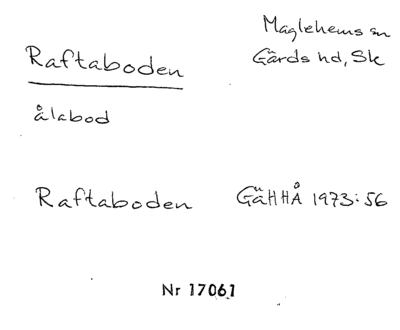 Raftaboden
Maglehems sn
Gärds hd, Sk
ålabod
Raftaboden GÄHHÅ 1973:56
Nr 17061